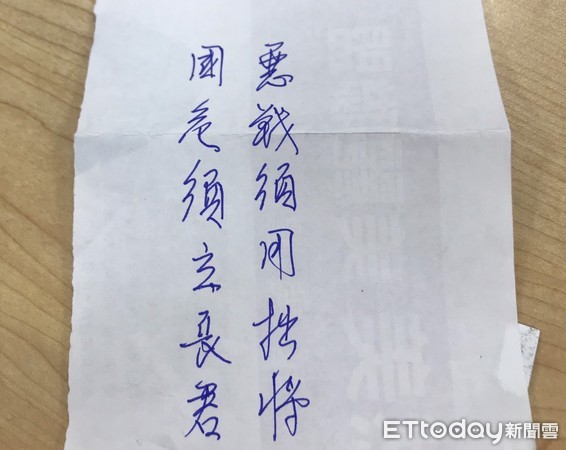 惡戰須用拙將
國危須立長君
ETtoday新聞雲